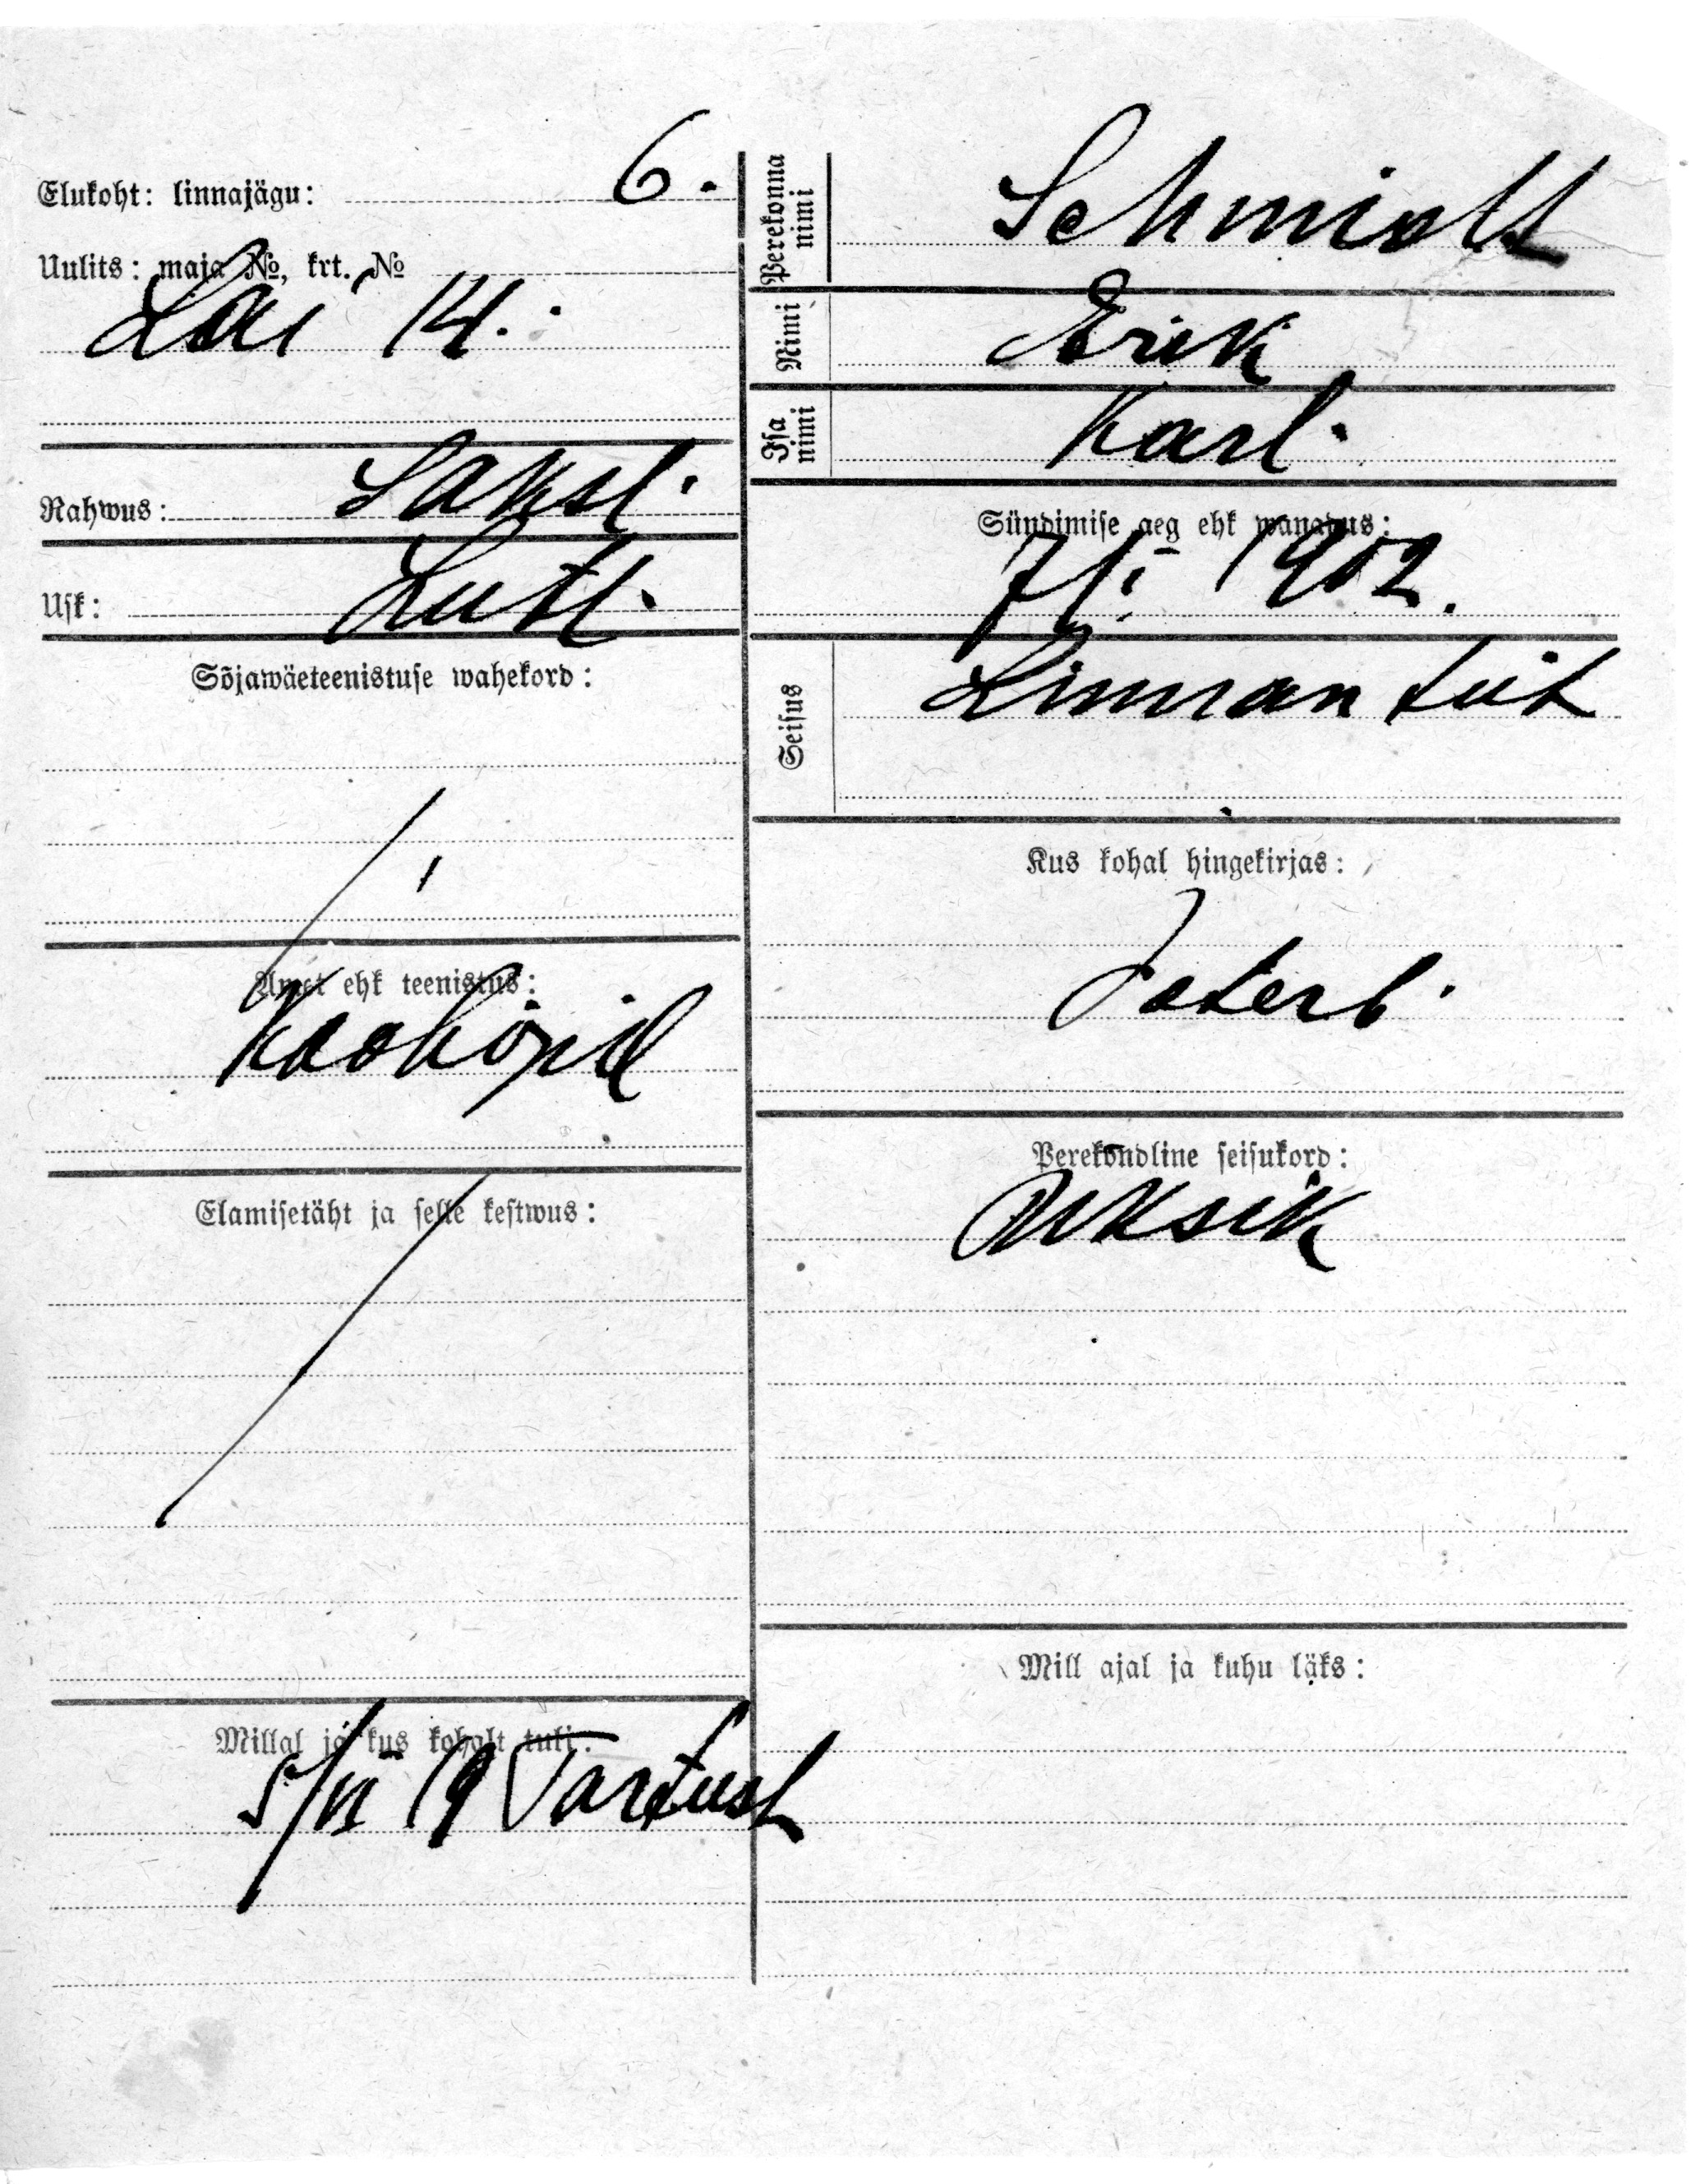 Elukoht: linnajägu: 6.
Uulits: maja №, krt. №
Lai 14.
Rahwus: Saksl.
Usk: Lutl.
Sõjawäeteenistuse wahekord:
Amet ehk teenistus:
Kooliõpil
Elamisetäht ja selle kestwus:
Millal ja kus kohalt tuli:
5/VI 19 Tartust
Perekonna nimi Schmidt
Nimi Erik
Isa nimi Karl.
Sündimise aeg ehk wanadus:
7/I 1902.
Seisus
Kus kohal hingekirjas:
Peterb.
Perekondline seisukord:
Üksik
Mill ajal ja kuhu läks: